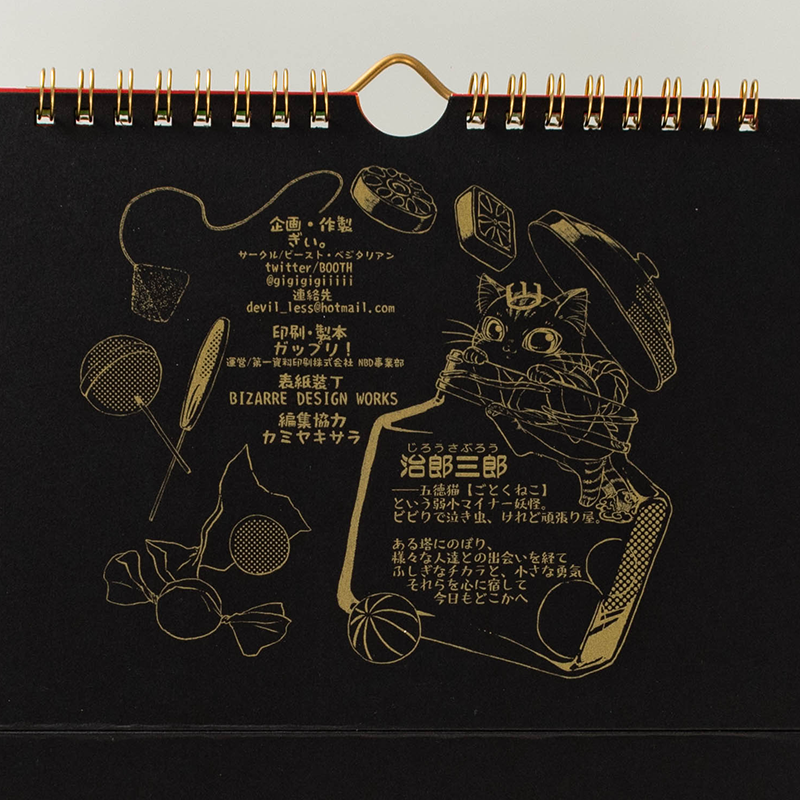 企画・作製
ぎぃ。
サークル/ビースト・ベジタリアン
twitter/BOOTH
@gigigigiiiii
連絡先
devil_less@hotmail.com
印刷・製本
ガップリ!
運営/第一資料印刷株式会社 NBD事業部
表紙装丁
BIZARRE DESIGN WORKS
編集協力
カミヤキサラ
じろうさぶろう
治郎三郎
――五徳猫【ごとくねこ】
という弱小マイナー妖怪。
ビビりで泣き虫、けれど頑張り屋。
ある塔にのぼり、
様々な人達との出会いを経て
ふしぎなチカラと、小さな勇気
それらを心に宿して
今日もどこかへ